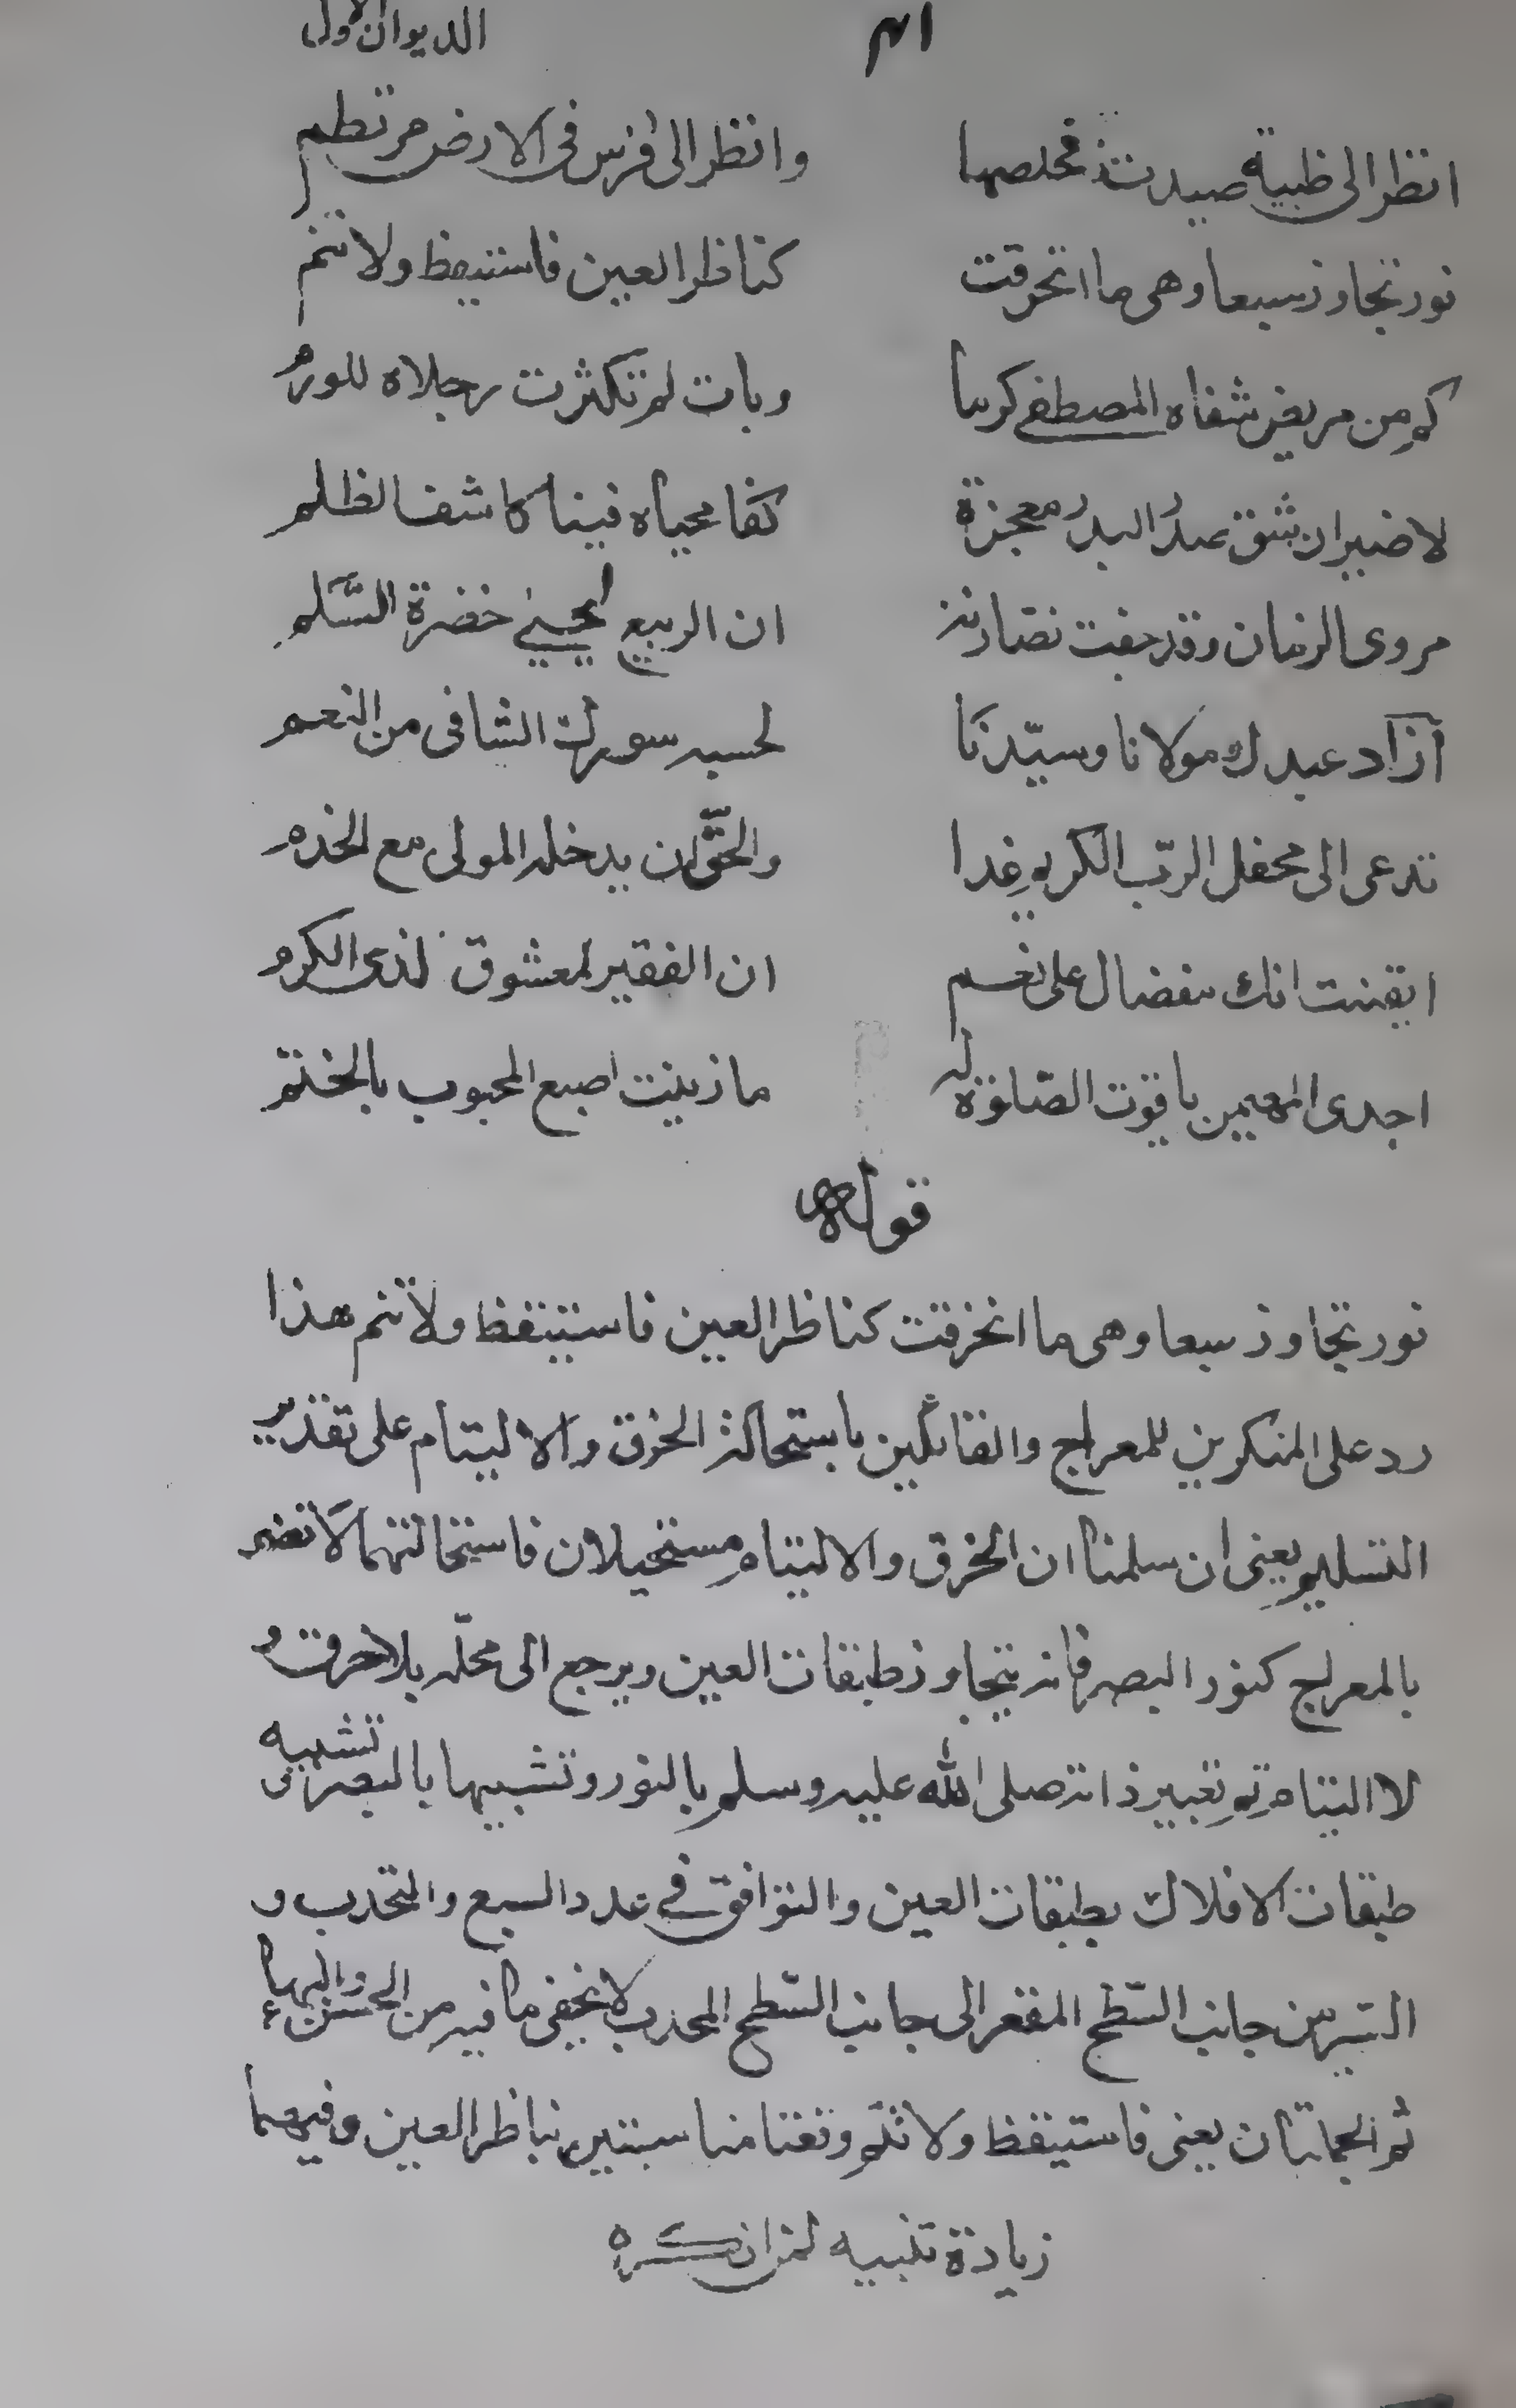 الديوان الاول
انظر الى ظبية صيدت فخلصها وانظر الى فرس فى الارض مرتطم
نور تجاوز سبعا وهى ما انخرقت كناظر العين فاستيقظ ولا تنم
كم من مريض شفاه المصطفى كرما وبات لم تكثرت رجلاه للورم
لا ضير ان شق عبد البدر معجزة كفا محياه فينا كاشف الظلم
مروى الزمان وقد جفت نضارته ان الربيع لمحيى خضرة السَّلم
آزاد عبدك مولانا وسيّدنا لحسبه سورك الشافى من النعم
تدعى الى محفل الربّ الكريم غدا والحقّ ان يدخله المولى مع الخدم
ايقنت انك مفضال على نعم ان الفقير لمعشوق لذى الكرم
اجدى المهيمن ياقوت الصلوة له ما زينت اصبع المحبوب بالختم
قوله
نور تجاوز سبعا وهى ما انخرقت كناظر العين فاستيقظ ولا تنم هذا
رد على المنكرين للمعراج والقائلين باستحالة الخرق والالتيام على تقدير
التسليم يعنى ان سلمنا ان الخرق والالتيام مستحيلان فاستحالتهما لا تضر
بالمعراج كنور البصر فانه يتجاوز طبقات العين ويرجع الى محله بلا خرق و
لا التيام ثم تعبير ذاته صلى الله عليه وسلم بالنور وتشبيهها بالبصر تشبيه
طبقات الافلاك بطبقات العين والتوافق فى عدد السبع والتحدب و
السير من جانب السّطح المقعر الى جانب السّطح المحدب لا يخفى ما فيه من الحسن والبهاء
ثم الجملتان يعنى فاستيقظ ولا تنم وقعتا مناسبتين بناظر العين وفيهما
زيادة تنبيه لمن انكره